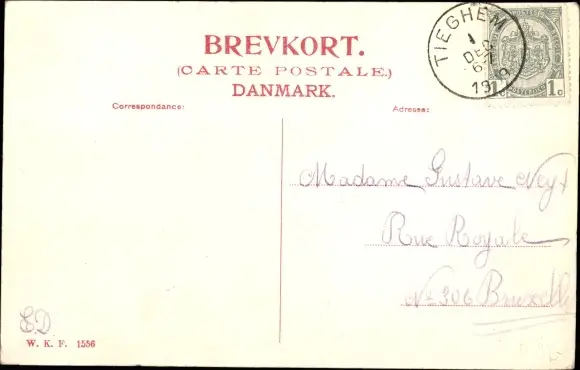 BREVKORT.
(CARTE POSTALE.)
DANMARK.
TIEGHEM
1
DEC
19
1c 1c
Correspondance:
Adresse:
Madame Gustave Ney
Rue Royale
No 306 Bruxelles
ED
W. K. F. 1556